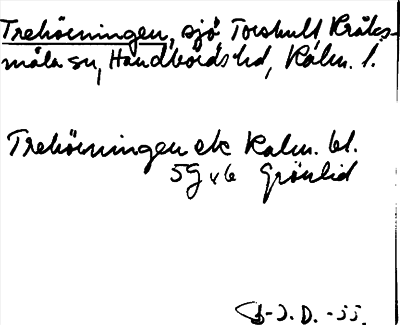 Trehörningen, sjö, Torshult, Kråks-
måla sn, Handbörds hd, Kalm. l.
Trehörningen ek Kalm. bl.
5g v6 Grönlid
G-J. D. -55.